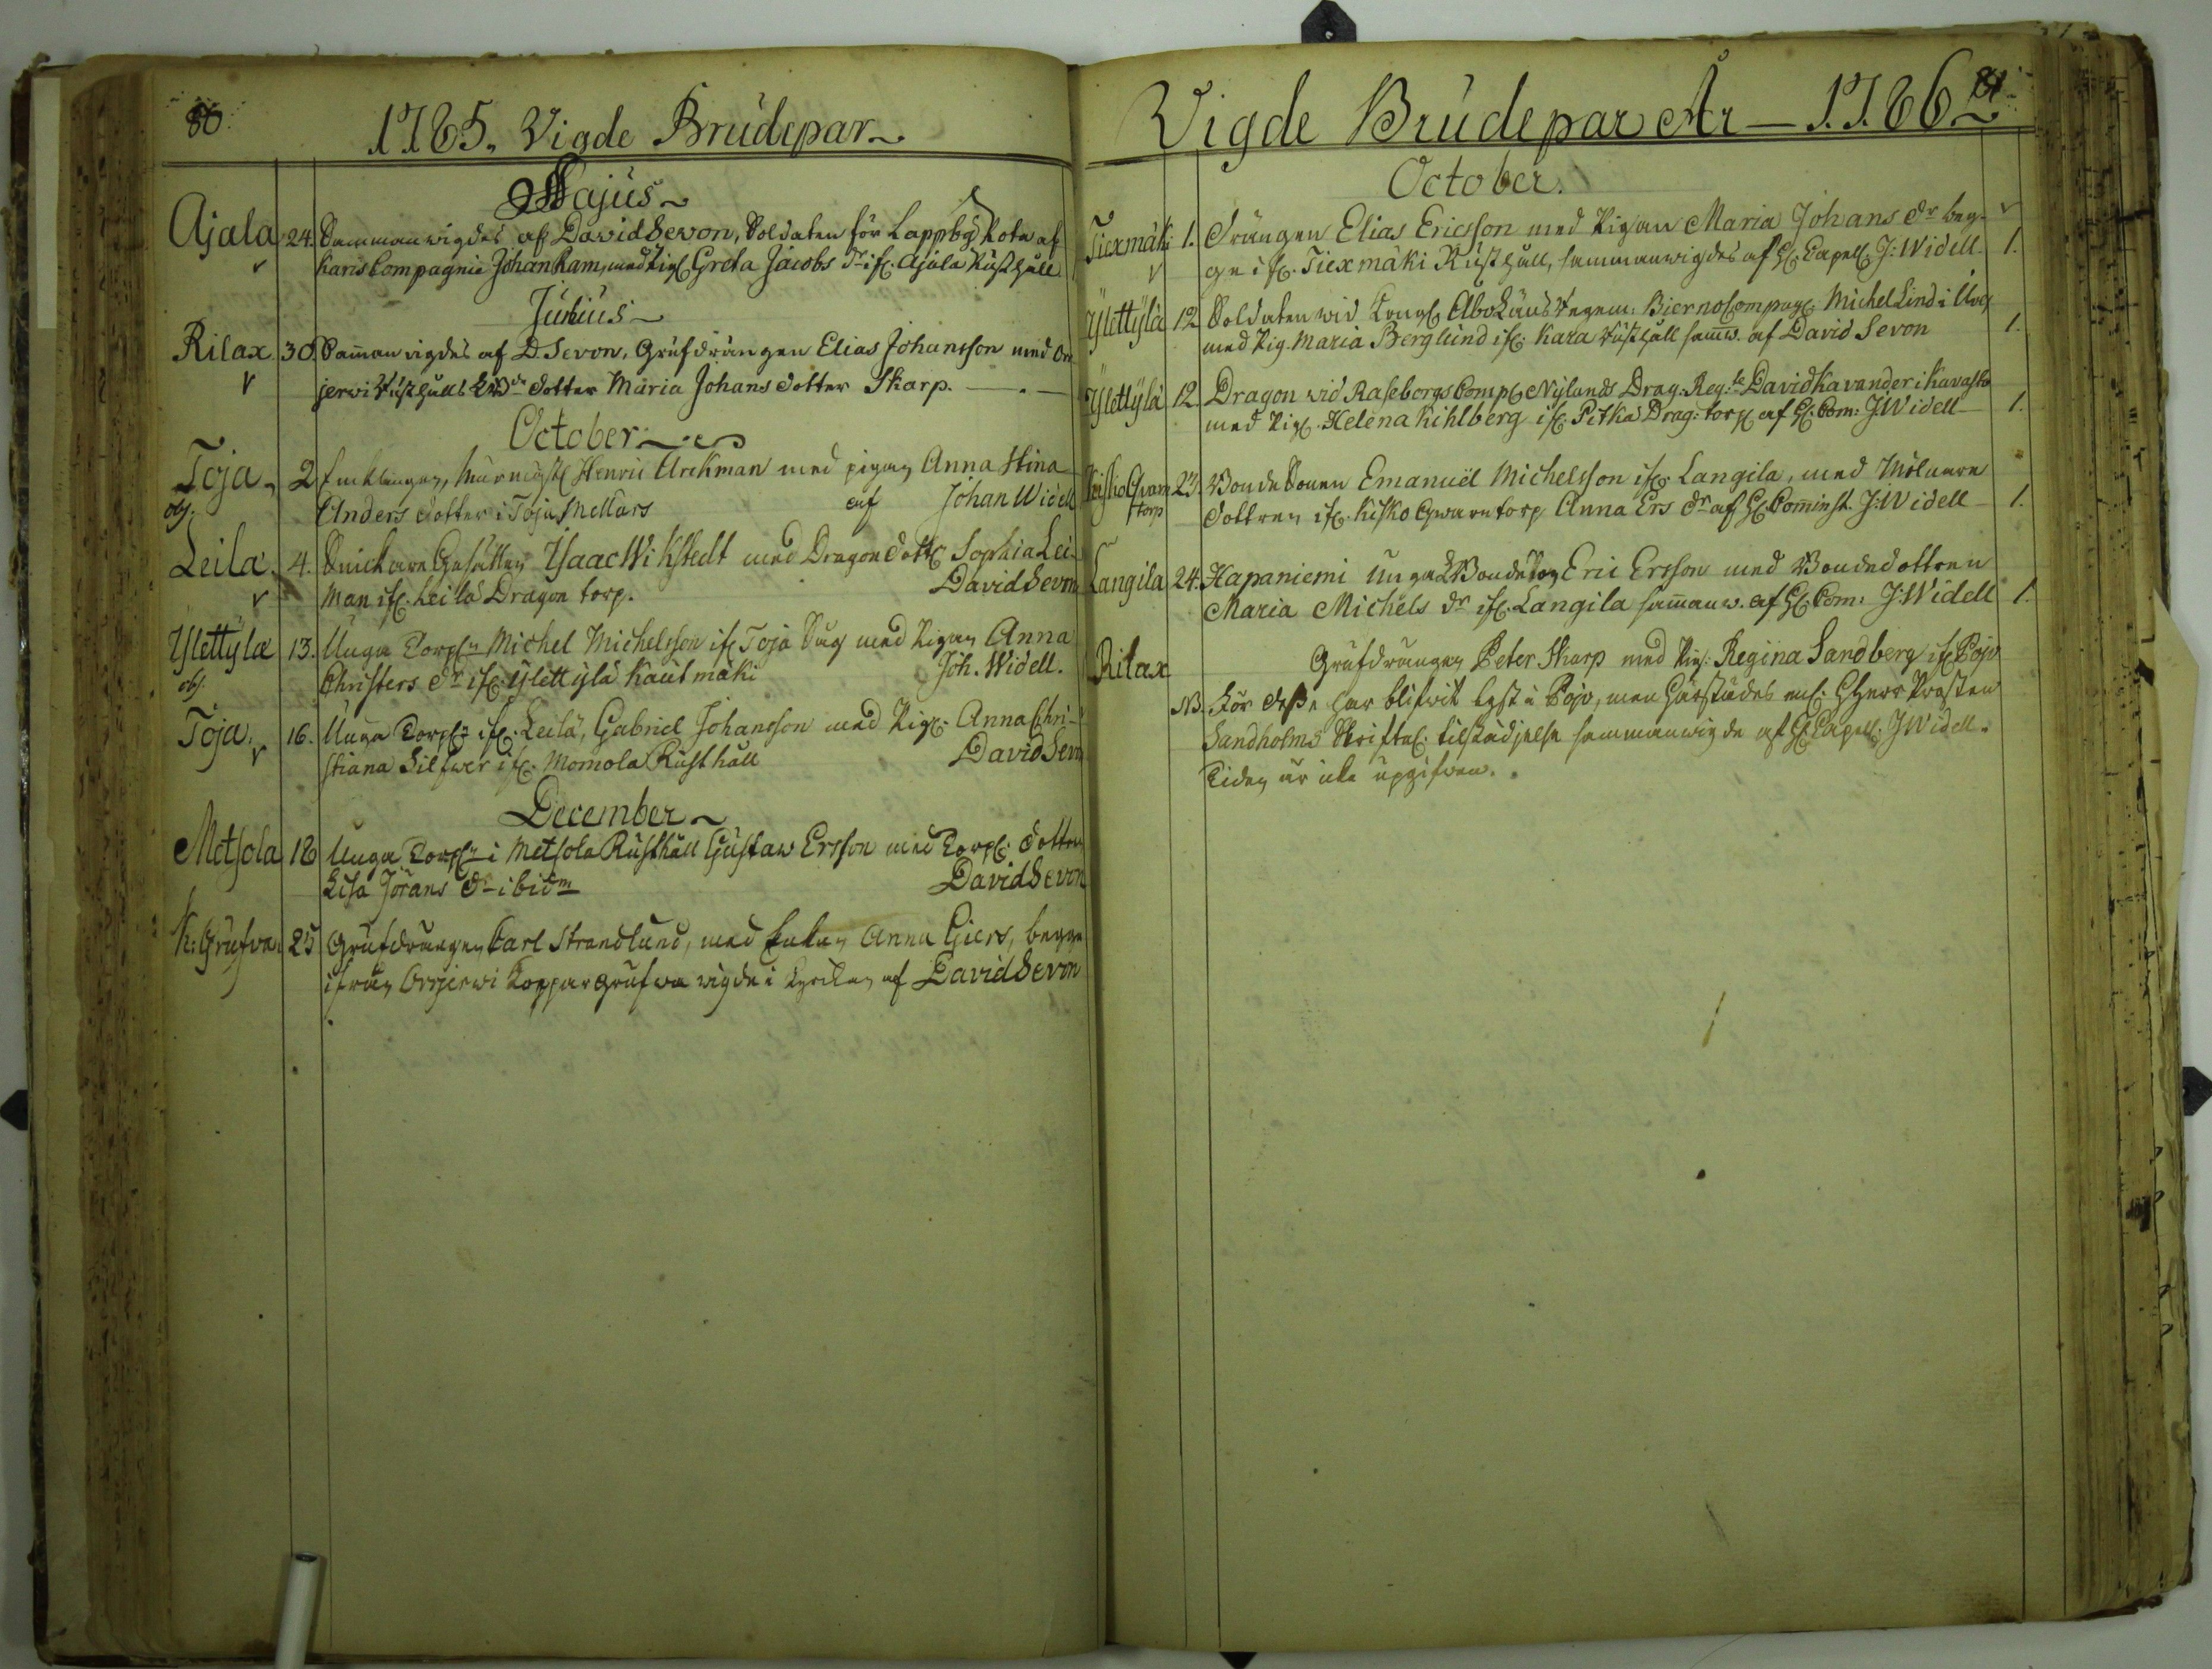 80.
1785. Vigde Brüdepar
Majus
Ajala 24. Sammanwigdes af David Sevon, Soldaten för Lappby Rota af
Karis Compagnie Johan Ham, med Pig. Greta Jacobs dr ifr. Ajala Rusthåll
Junius
Rilax 30. Samman vigdes af D. Sevon, Grufdrängen Elias Johansson med Ori
jerwi Rusthålls dotter Maria Johans dotter Skarp.
October
Toja 2 Enklingen, Henric Urckman med pigan Anna Stina
obs. Anders dotter i Toja Mellars af Johan Widell
Leila 4. Snickare Gesällen Ysaac Wikstedt med Dragon dottr. Sophia Lei-
man ifr. Leila Dragon torp. David Sevon
Ylettyla 13. Unga Torp. Michel Michelsson ifr. Toja med Pigan Anna
obs. Christers dr ifr. Ylettyla Kautmaki Joh. Widell.
Toja 16. Unga Torp. ifr. Leila, Gabriel Johansson med Pig. Anna Chri-
stiana Silfwer ifr. Momola Rusthåll David Sevon
December
Metsola 18 Unga Torp. i Metsola Rusthåll Gustaw Ersson med Torp. dottren
Lisa Jörans dr ibidm David Sevon
K: Grufvan 25 Grufdrängen Carl Strandlund, med Enkan Anna Giers, begge
ifrån Orrjerwi Koppargrufwa wigde i Kyrckan af David Sevon
Vigde Brüdepar År 1786 81.
October.
Tiexmäki 1. Drängen Elias Ericsson med Pigan Maria Johans dr beg-
ge ifr. Tiexmäki Rusthåll, sammanwigdes af H. Capell. J: Widell. 1.
Ylettylä 12 Soldaten wid Kongl. Åbo Läns Regem: Bierno Compag. Michel Lind i
med Pig. Maria Berglund ifr. Kara Rusthåll samw. af David Sevon 1.
Ylettylä 12. Dragon wid Raseborgs Comp. Nylands Drag: Reg:te David Kavander i Kavasto
med Pig. Helena Kihlberg ifr. Pitka Drag: torp af H. Com: J Widell 1.
Kisko Qvarn torp 23. Bonde Sonen Emanuel Michelsson ifr. Langila, med Mölnare
dottren ifr. Kisko Qwarntorp Anna Ers dr af H. Cominist. J: Widell 1.
Langila 24. Hapaniemi Unga Bonden Eric Ersson med Bondedottren
Maria Michels dr ifr. Langila samanw. af H. Com: J: Widell 1.
Rilax Grufdrängen Peter Skarp med Pig: Regina Sandberg ifr. Pojo
NB. För desse har blifwit lyst i Pojo, men härstädes enl. Herr Prosten
Sandholms Skriftel. tilstädjelse sammanwigde af H. Capell: J Widell.
Tiden är icke upgifven.